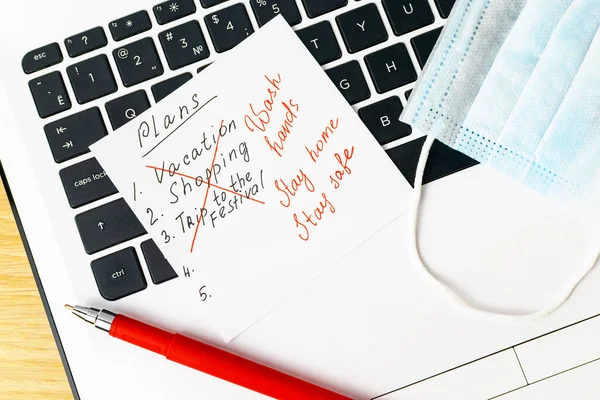 esc
!
1
? 
" @
2
* 
3 №
; $
4
% 5
Ё
Q
T
Y
U
G
H
B
caps lock
ctrl
Plans
1. Vacation
2. Shopping
3. Trip to the
Festival
4.
5.
Wash
hands
Stay home
Stay safe